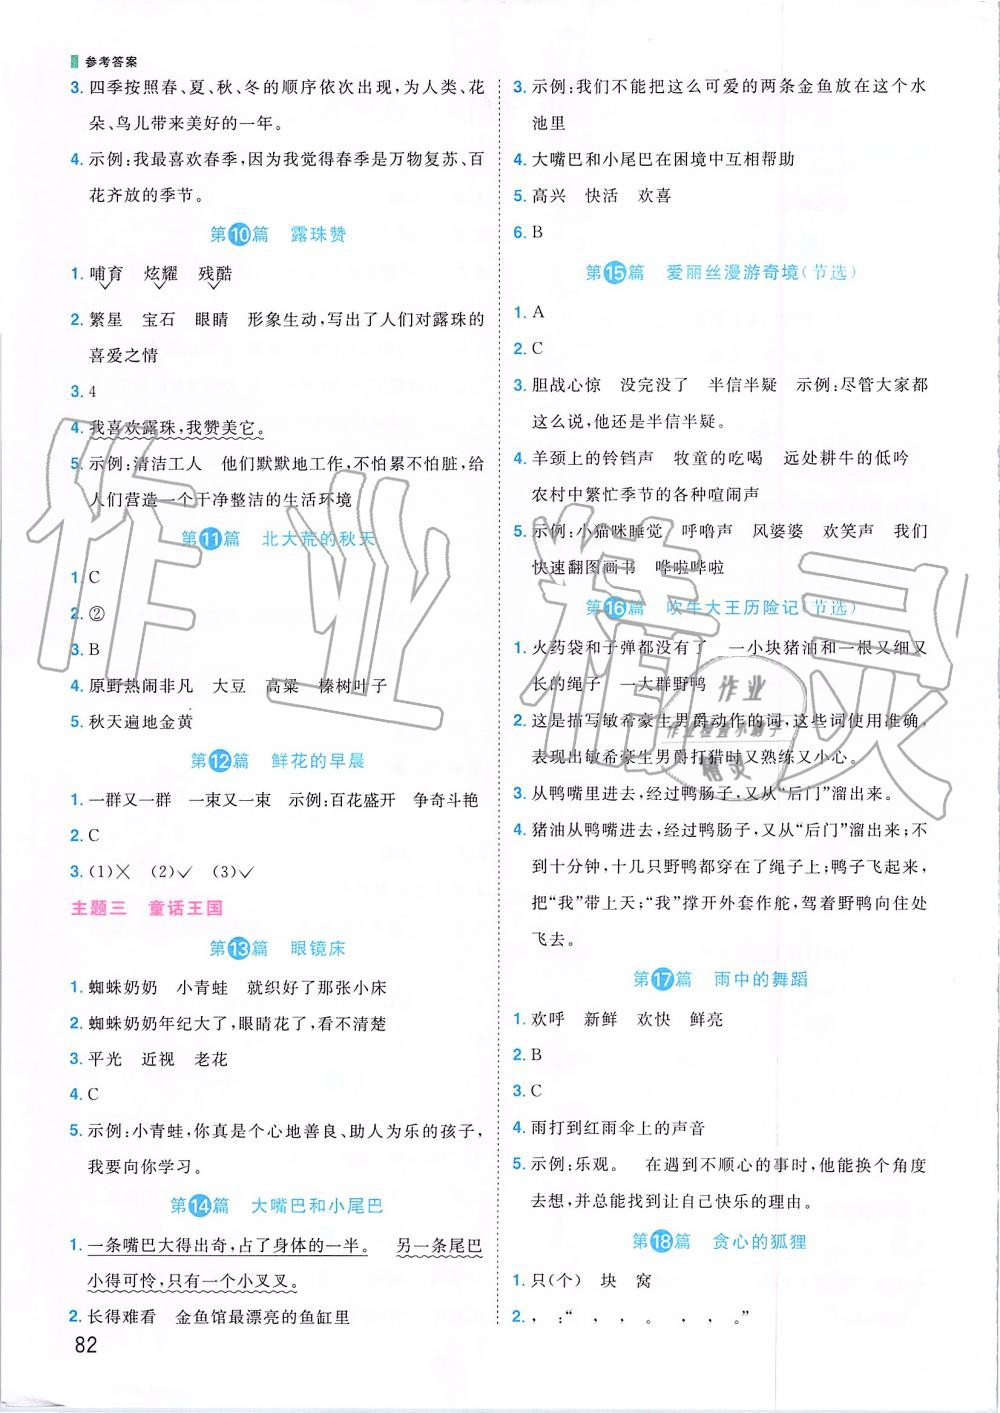 参考答案
3. 四季按照春、夏、秋、冬的顺序依次出现,为人类、花
朵、鸟儿带来美好的一年。
4. 示例:我最喜欢春季,因为我觉得春季是万物复苏、百
花齐放的季节。
第10篇 露珠赞
1. 哺育 炫耀 残酷
2. 繁星 宝石 眼睛 形象生动,写出了人们对露珠的
喜爱之情
3. 4
4. 我喜欢露珠,我赞美它。
5. 示例:清洁工人 他们默默地工作,不怕累不怕脏,给
人们营造一个干净整洁的生活环境
第11篇 北大荒的秋天
1. C
2. ②
3. B
4. 原野热闹非凡 大豆 高粱 榛树叶子
5. 秋天遍地金黄
第12篇 鲜花的早晨
1. 一群又一群 一束又一束 示例:百花盛开 争奇斗艳
2. C
3. (1)╳ (2)✓ (3)✓
主题三 童话王国
第13篇 眼镜床
1. 蜘蛛奶奶 小青蛙 就织好了那张小床
2. 蜘蛛奶奶年纪大了,眼睛花了,看不清楚
3. 平光 近视 老花
4. C
5. 示例:小青蛙,你真是个心地善良、助人为乐的孩子,
我要向你学习。
第14篇 大嘴巴和小尾巴
1. 一条嘴巴大得出奇,占了身体的一半。 另一条尾巴
小得可怜,只有一个小叉叉。
2. 长得难看 金鱼馆最漂亮的鱼缸里
82
3. 示例:我们不能把这么可爱的两条金鱼放在这个水
池里
4. 大嘴巴和小尾巴在困境中互相帮助
5. 高兴 快活 欢喜
6. B
第15篇 爱丽丝漫游奇境(节选)
1. A
2. C
3. 胆战心惊 没完没了 半信半疑 示例:尽管大家都
这么说,他还是半信半疑。
4. 羊颈上的铃铛声 牧童的吃喝 远处耕牛的低吟
农村中繁忙季节的各种喧闹声
5. 示例:小猫咪睡觉 呼噜声 风婆婆 欢笑声 我们
快速翻图画书 哗啦哗啦
第16篇 吹牛大王历险记(节选)
1. 火药袋和子弹都没有了 一小块猪油和一根又细又
长的绳子 一大群野鸭
2. 这是描写敏希豪生男爵动作的词,这些词使用准确,
表现出敏希豪生男爵打猎时又熟练又小心。
3. 从鸭嘴里进去,经过鸭肠子,又从“后门”溜出来。
4. 猪油从鸭嘴进去,经过鸭肠子,又从“后门”溜出来;不
到十分钟,十几只野鸭都穿在了绳子上;鸭子飞起来,
把“我”带上天;“我”撑开外套作舵,驾着野鸭向住处
飞去。
第17篇 雨中的舞蹈
1. 欢呼 新鲜 欢快 鲜亮
2. B
3. C
4. 雨打到红雨伞上的声音
5. 示例:乐观。 在遇到不顺心的事时,他能换个角度
去想,并总能找到让自己快乐的理由。
第18篇 贪心的狐狸
1. 只(个) 块 窝
2. , :“ , , 。 , , 。”
作业精灵
作业
作业检查小助手
精灵